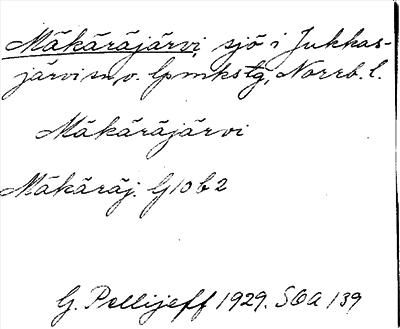 Mäkäräjärvi, sjö i Jukkas-
järvi sn o. lpmkstg, Norrb. l.
Mäkäräjärvi
Mäkäräj. G10b2
G. Pellijeff 1929. SOA 139